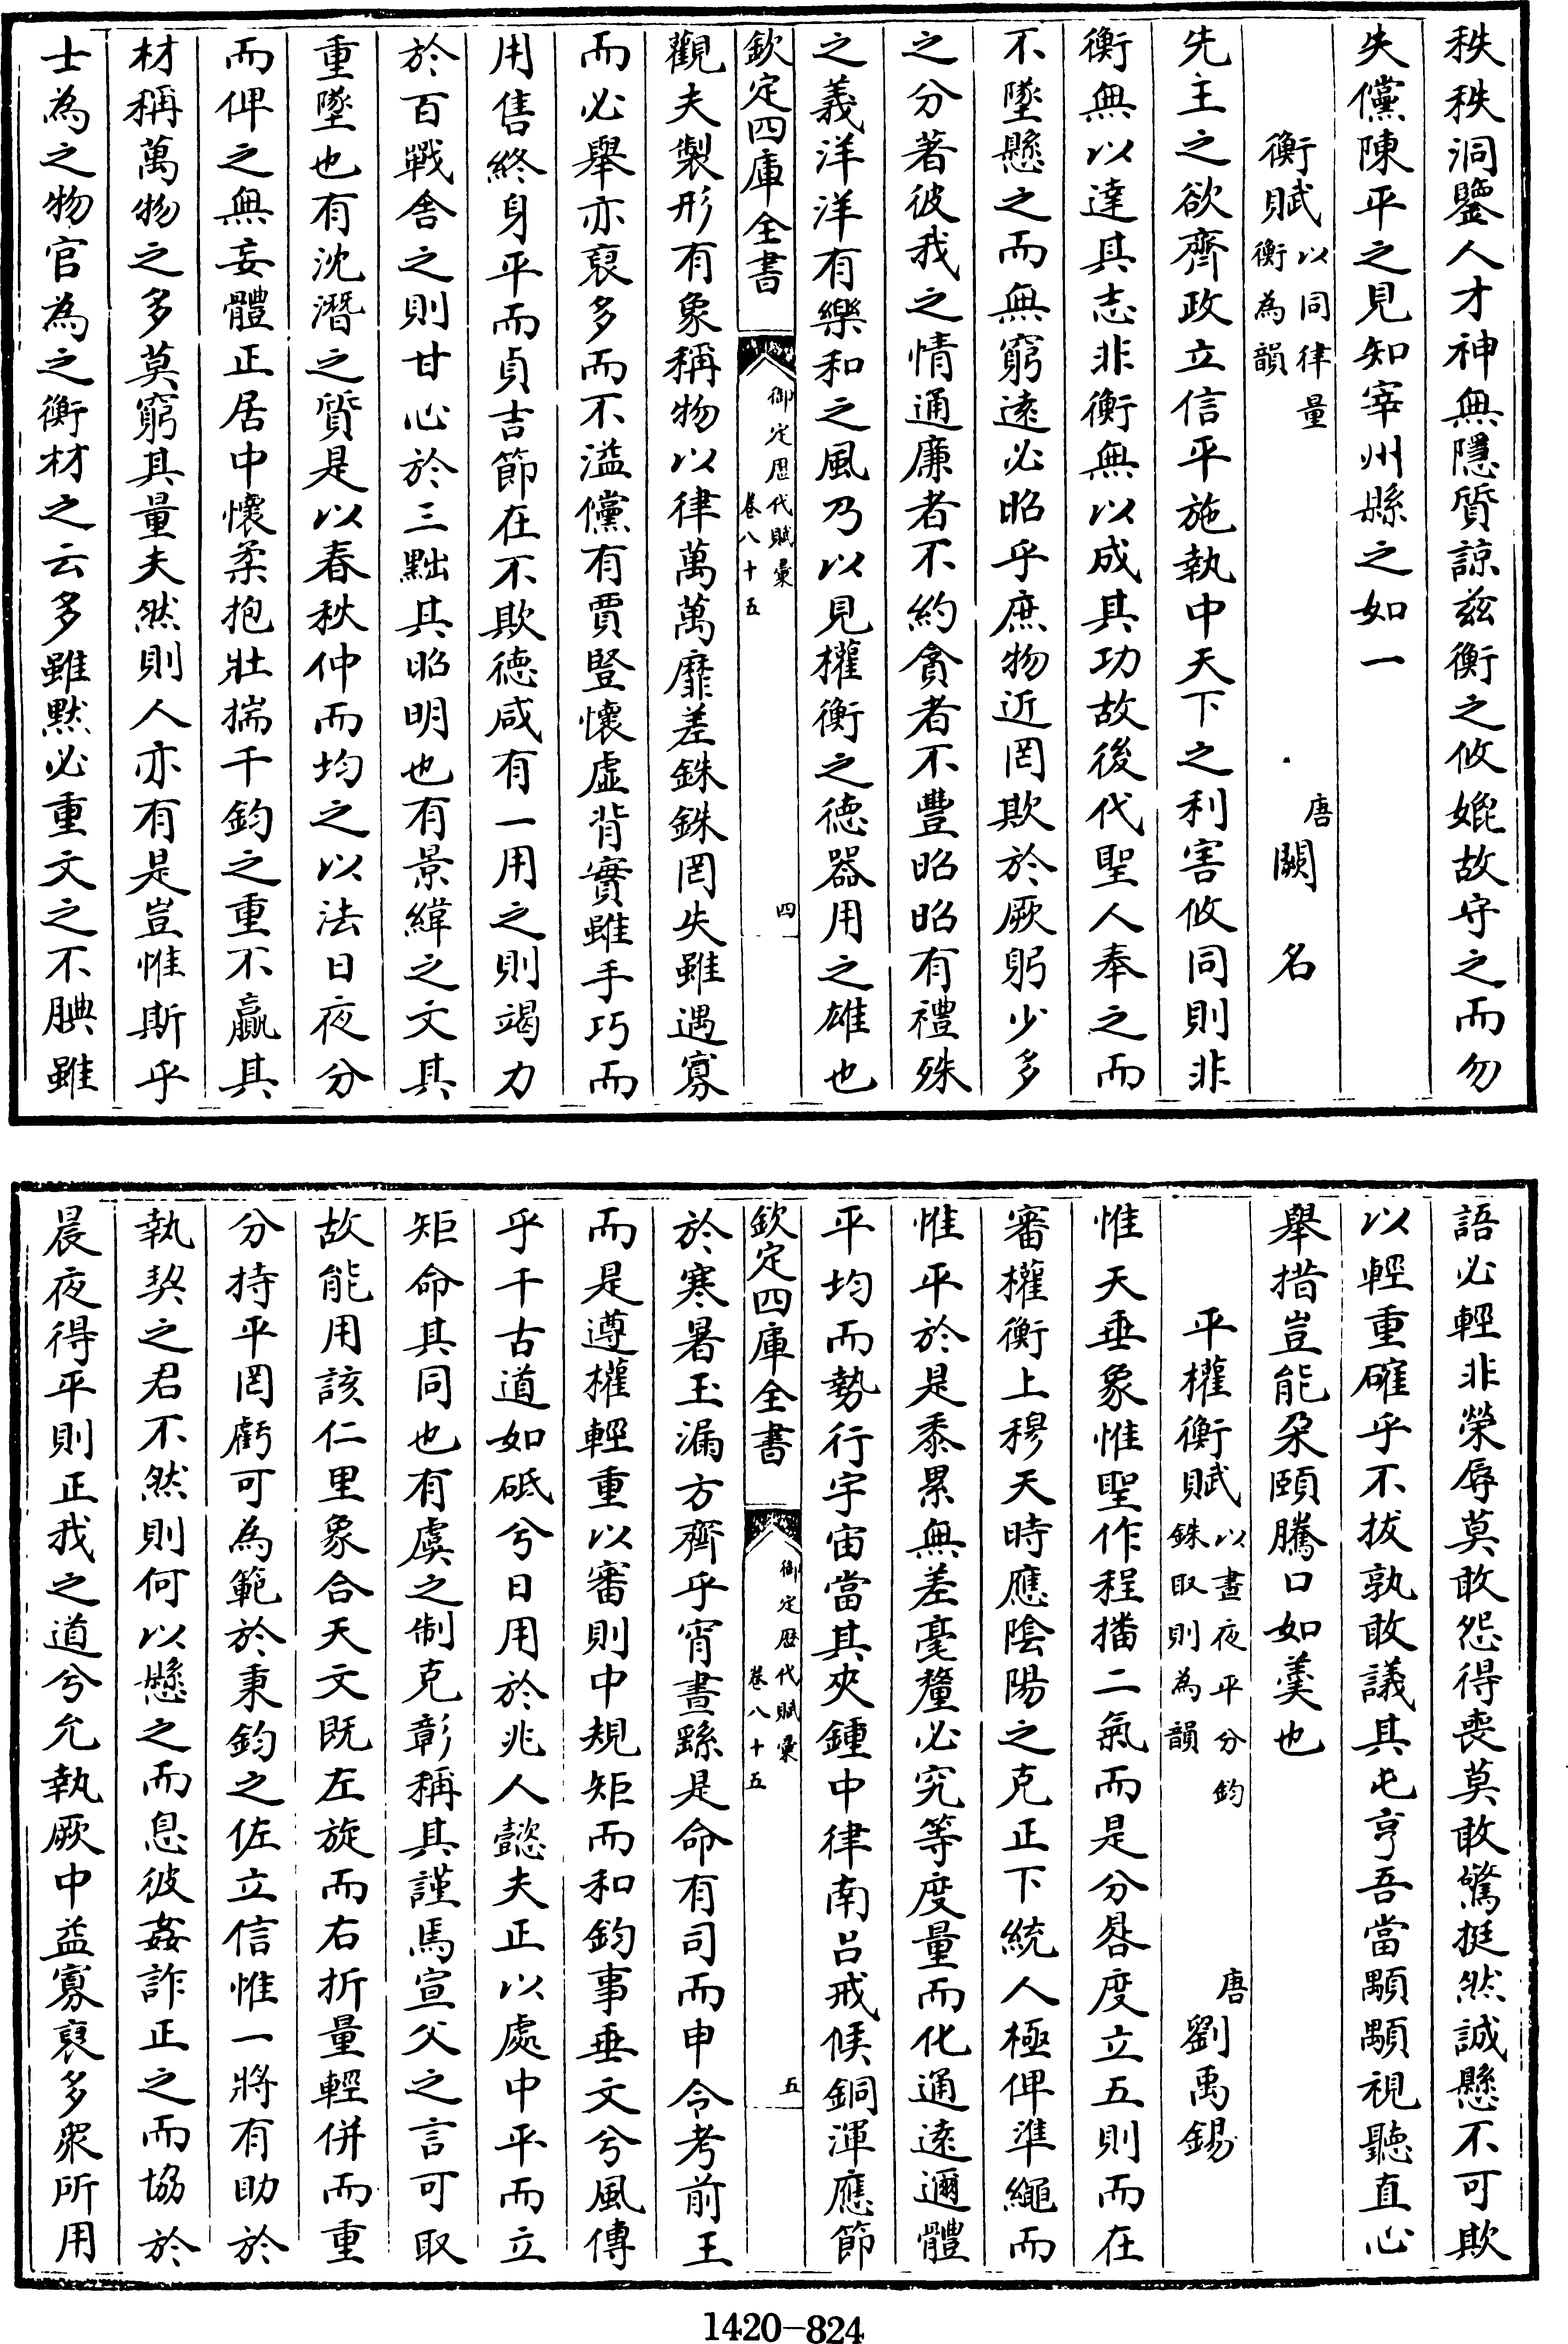 秩秩洞鑒人才神無隱質諒兹衡之攸嫓故守之而勿
失儻陳平之見知宰州縣之如一
衡賦以同律量衡為韻
唐闕名
先主之欲齊政立信平施執中天下之利害攸同則非
衡無以達其志非衡無以成其功故後代聖人奉之而
不墜懸之而無窮遠必昭乎庶物近罔欺於厥躬少多
之分著彼我之情通廉者不約貪者不豐昭昭有禮殊
之義洋洋有樂和之風乃以見權衡之徳器用之雄也
欽定四庫全書
御定歷代賦彙
卷八十五
四
觀夫製形有象稱物以律萬萬靡差銖銖罔失雖遇寡
而必舉亦裒多而不溢儻有賈豎懷虛背實雖手巧而
用售終身平而貞吉節在不欺徳咸有一用之則竭力
於百戰舍之則甘心於三黜其昭明也有景緯之文其
重墜也有沈潛之質是以春秋仲而均之以法日夜分
而俾之無妄體正居中懷柔抱壯揣千鈞之重不羸其
材稱萬物之多莫窮其量夫然則人亦有是豈惟斯乎
士為之物官為之衡材之云多雖默必重文之不腆雖
語必輕非榮辱莫敢怨得喪莫敢驚挺然誠懸不可欺
以輕重確乎不拔孰敢議其屯亨吾當顒顒視聽直心
舉措豈能朶頤騰口如羹也
平權衡賦以晝夜平分鈞銖取則為韻
唐劉禹錫
惟天垂象惟聖作程播二氣而是分晷度立五則而在
審權衡上穆天時應陰陽之克正下統人極俾準繩而
惟平於是黍累無差毫釐必究等度量而化通遠邇體
平均而勢行宇宙當其夾鍾中律南吕戒候銅渾應節
欽定四庫全書
御定歷代賦彙
卷八十五
五
於寒暑玉漏方齊乎宵晝繇是命有司而申令考前王
而是遵權輕重以審則中規矩而和鈞事垂文兮風傳
乎千古道如砥兮日用於兆人懿夫正以處中平而立
矩命其同也有虞之制克彰稱其謹焉宣父之言可取
故能用該仁里象合天文既左旋而右折量輕併而重
分持平罔虧可為範於秉鈞之佐立信惟一將有助於
執契之君不然則何以懸之而息彼姦詐正之而協於
晨夜得平則正我之道兮允執厥中益寡裒多衆所用
1420-824